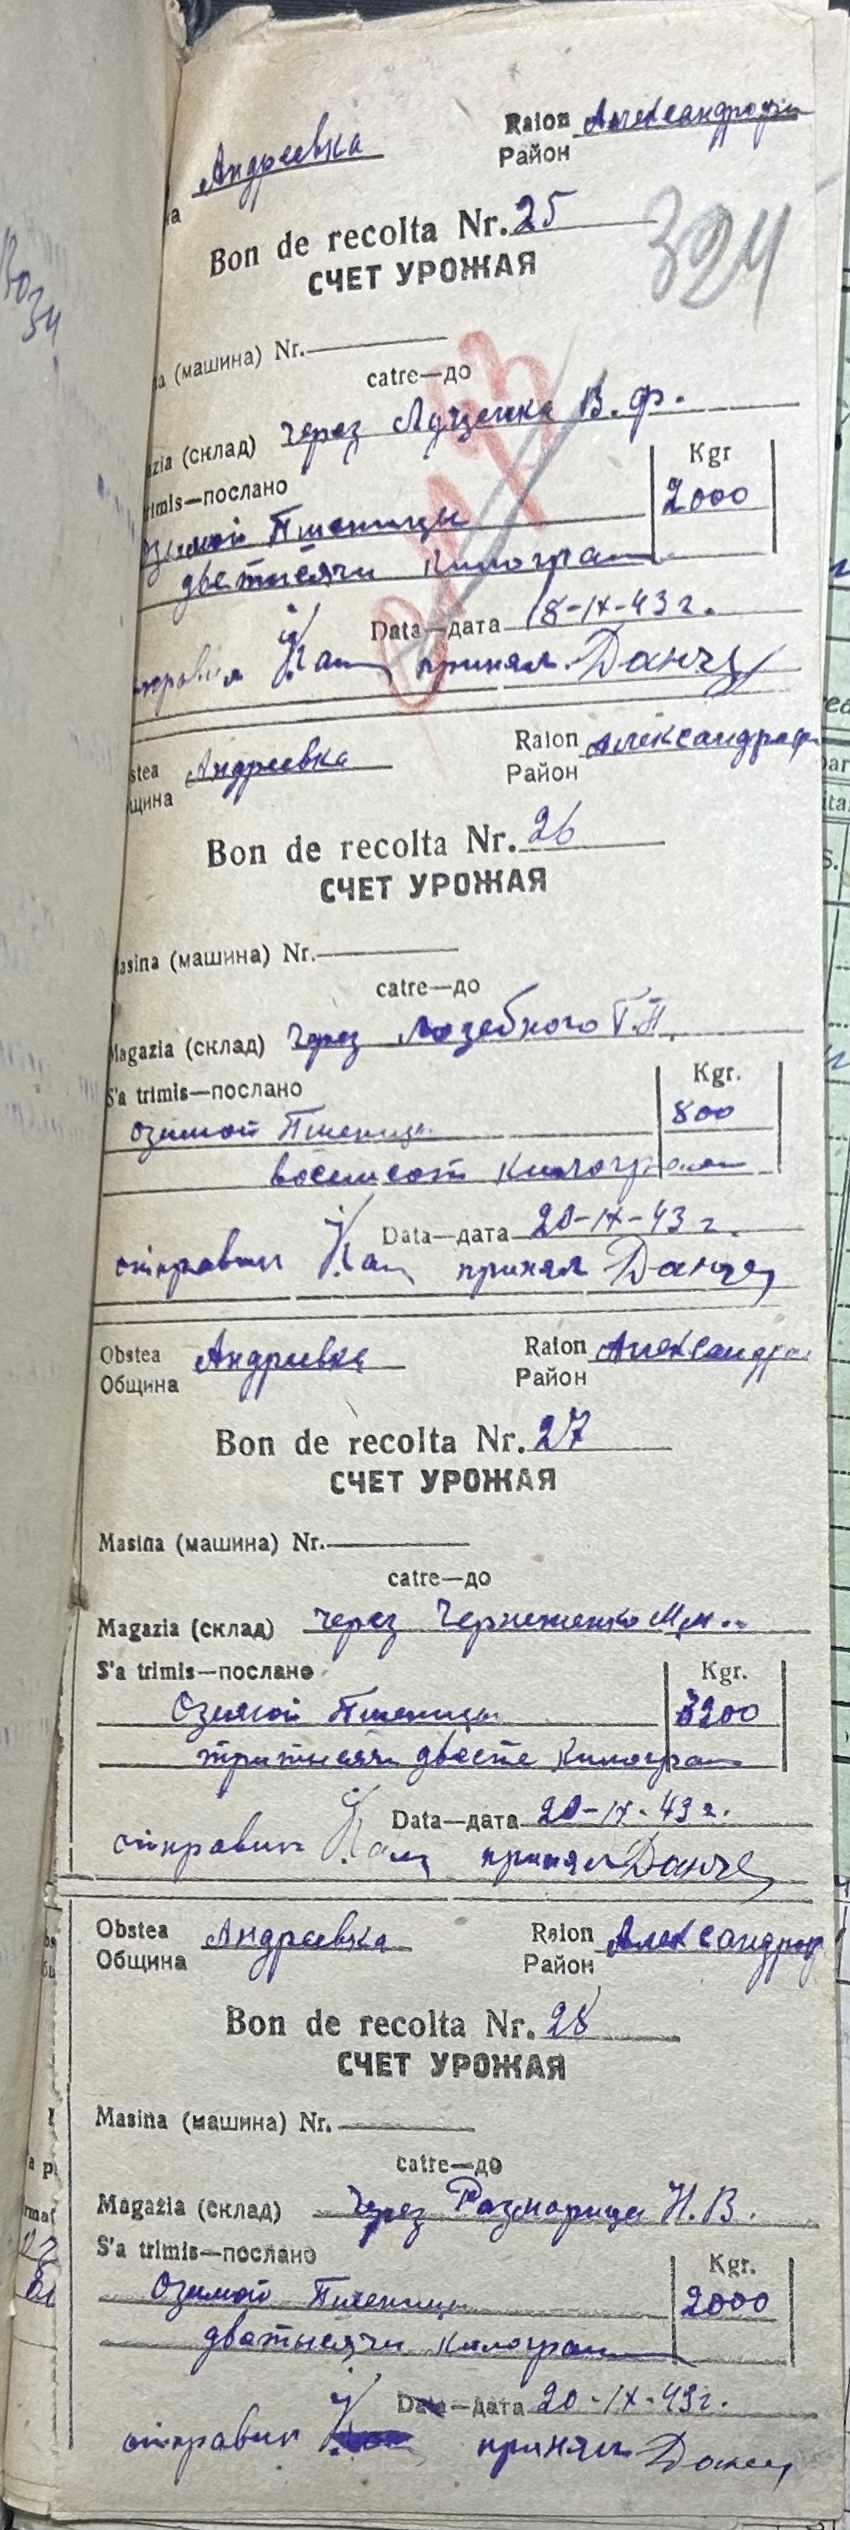 Raion Александрфи
Андреевка Район
Bon de recolta Nr. 25
СЧЕТ УРОЖАЯ
324
(машина) Nr.
catre—до
(склад) через В. Ф.
Kgr
trimis—послано 2000
озимой Пшеницы
две тысячи Килограм
Data—дата 18-IX-43 г.
отправил принял
Raion Александрф
Андреевка Район
Bon de recolta Nr. 26
СЧЕТ УРОЖАЯ
Masina (машина) Nr.
catre—до
Magazia (склад) через Лозебного Г.П.
Kgr.
S'a trimis—послано 800
озимой Пшеницы
восемсот Килограм
Data—дата 20-IX-43 г.
отправил принял
Obstea Андриевка Raion Александр
Община Район
Bon de recolta Nr. 27
СЧЕТ УРОЖАЯ
Masina (машина) Nr.
catre—до
Magazia (склад) через М.М.
S'a trimis—послано Kgr.
Озимой Пшеницы 3200
три тисячи двесте Килограм
Data—дата 20-IX-43 г.
отправил принял
Obstea Андреевка Raion Александроф
Община Район
Bon de recolta Nr. 28
СЧЕТ УРОЖАЯ
Masina (машина) Nr.
catre—до
Magazia (склад) через Размарица Н. В.
S'a trimis—послано Kgr.
Озимой Пшеницы 2000
две тысячи Килограм
Data—дата 20-IX-43 г.
отправил принял